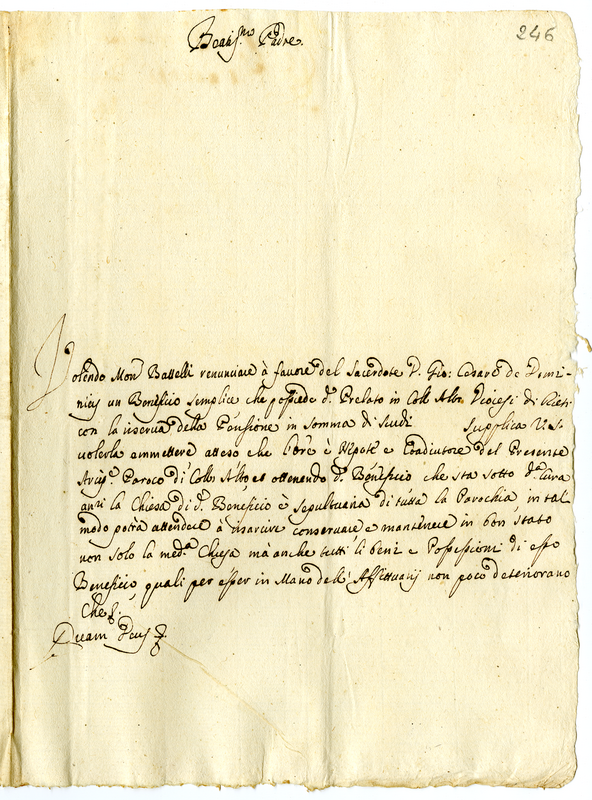 246
Beatis.mo Padre.
Volendo Mon.r Battelli renunciare à favore del Sacerdote D. Gio: Cesare de Domi-
nicis un Beneficio semplice che possiede d.o Prelato in Colle Alto Diocesi di Rieti
con la riserva della Pensione in somma di Scudi Supplica V. S.
volerla ammettere atteso che l'Ore è Nipote e Coadiutore del Presente
Arcip.e Paroco di Colle Alto, et ottenendo d.o Beneficio che sta sotto d.a Cura
anzi la Chiesa di d.o Beneficio è sepultuaria di tutta la Parochia, in tal
modo potrà attendere à risarcire conservare, e mantenere in bon stato
non solo la med.a Chiesa, ma anche tutti li beni e Possessioni di esso
Beneficio, quali per esser in Mano dell' Affittuarij non poco deteriorano
Che
Quam Deus